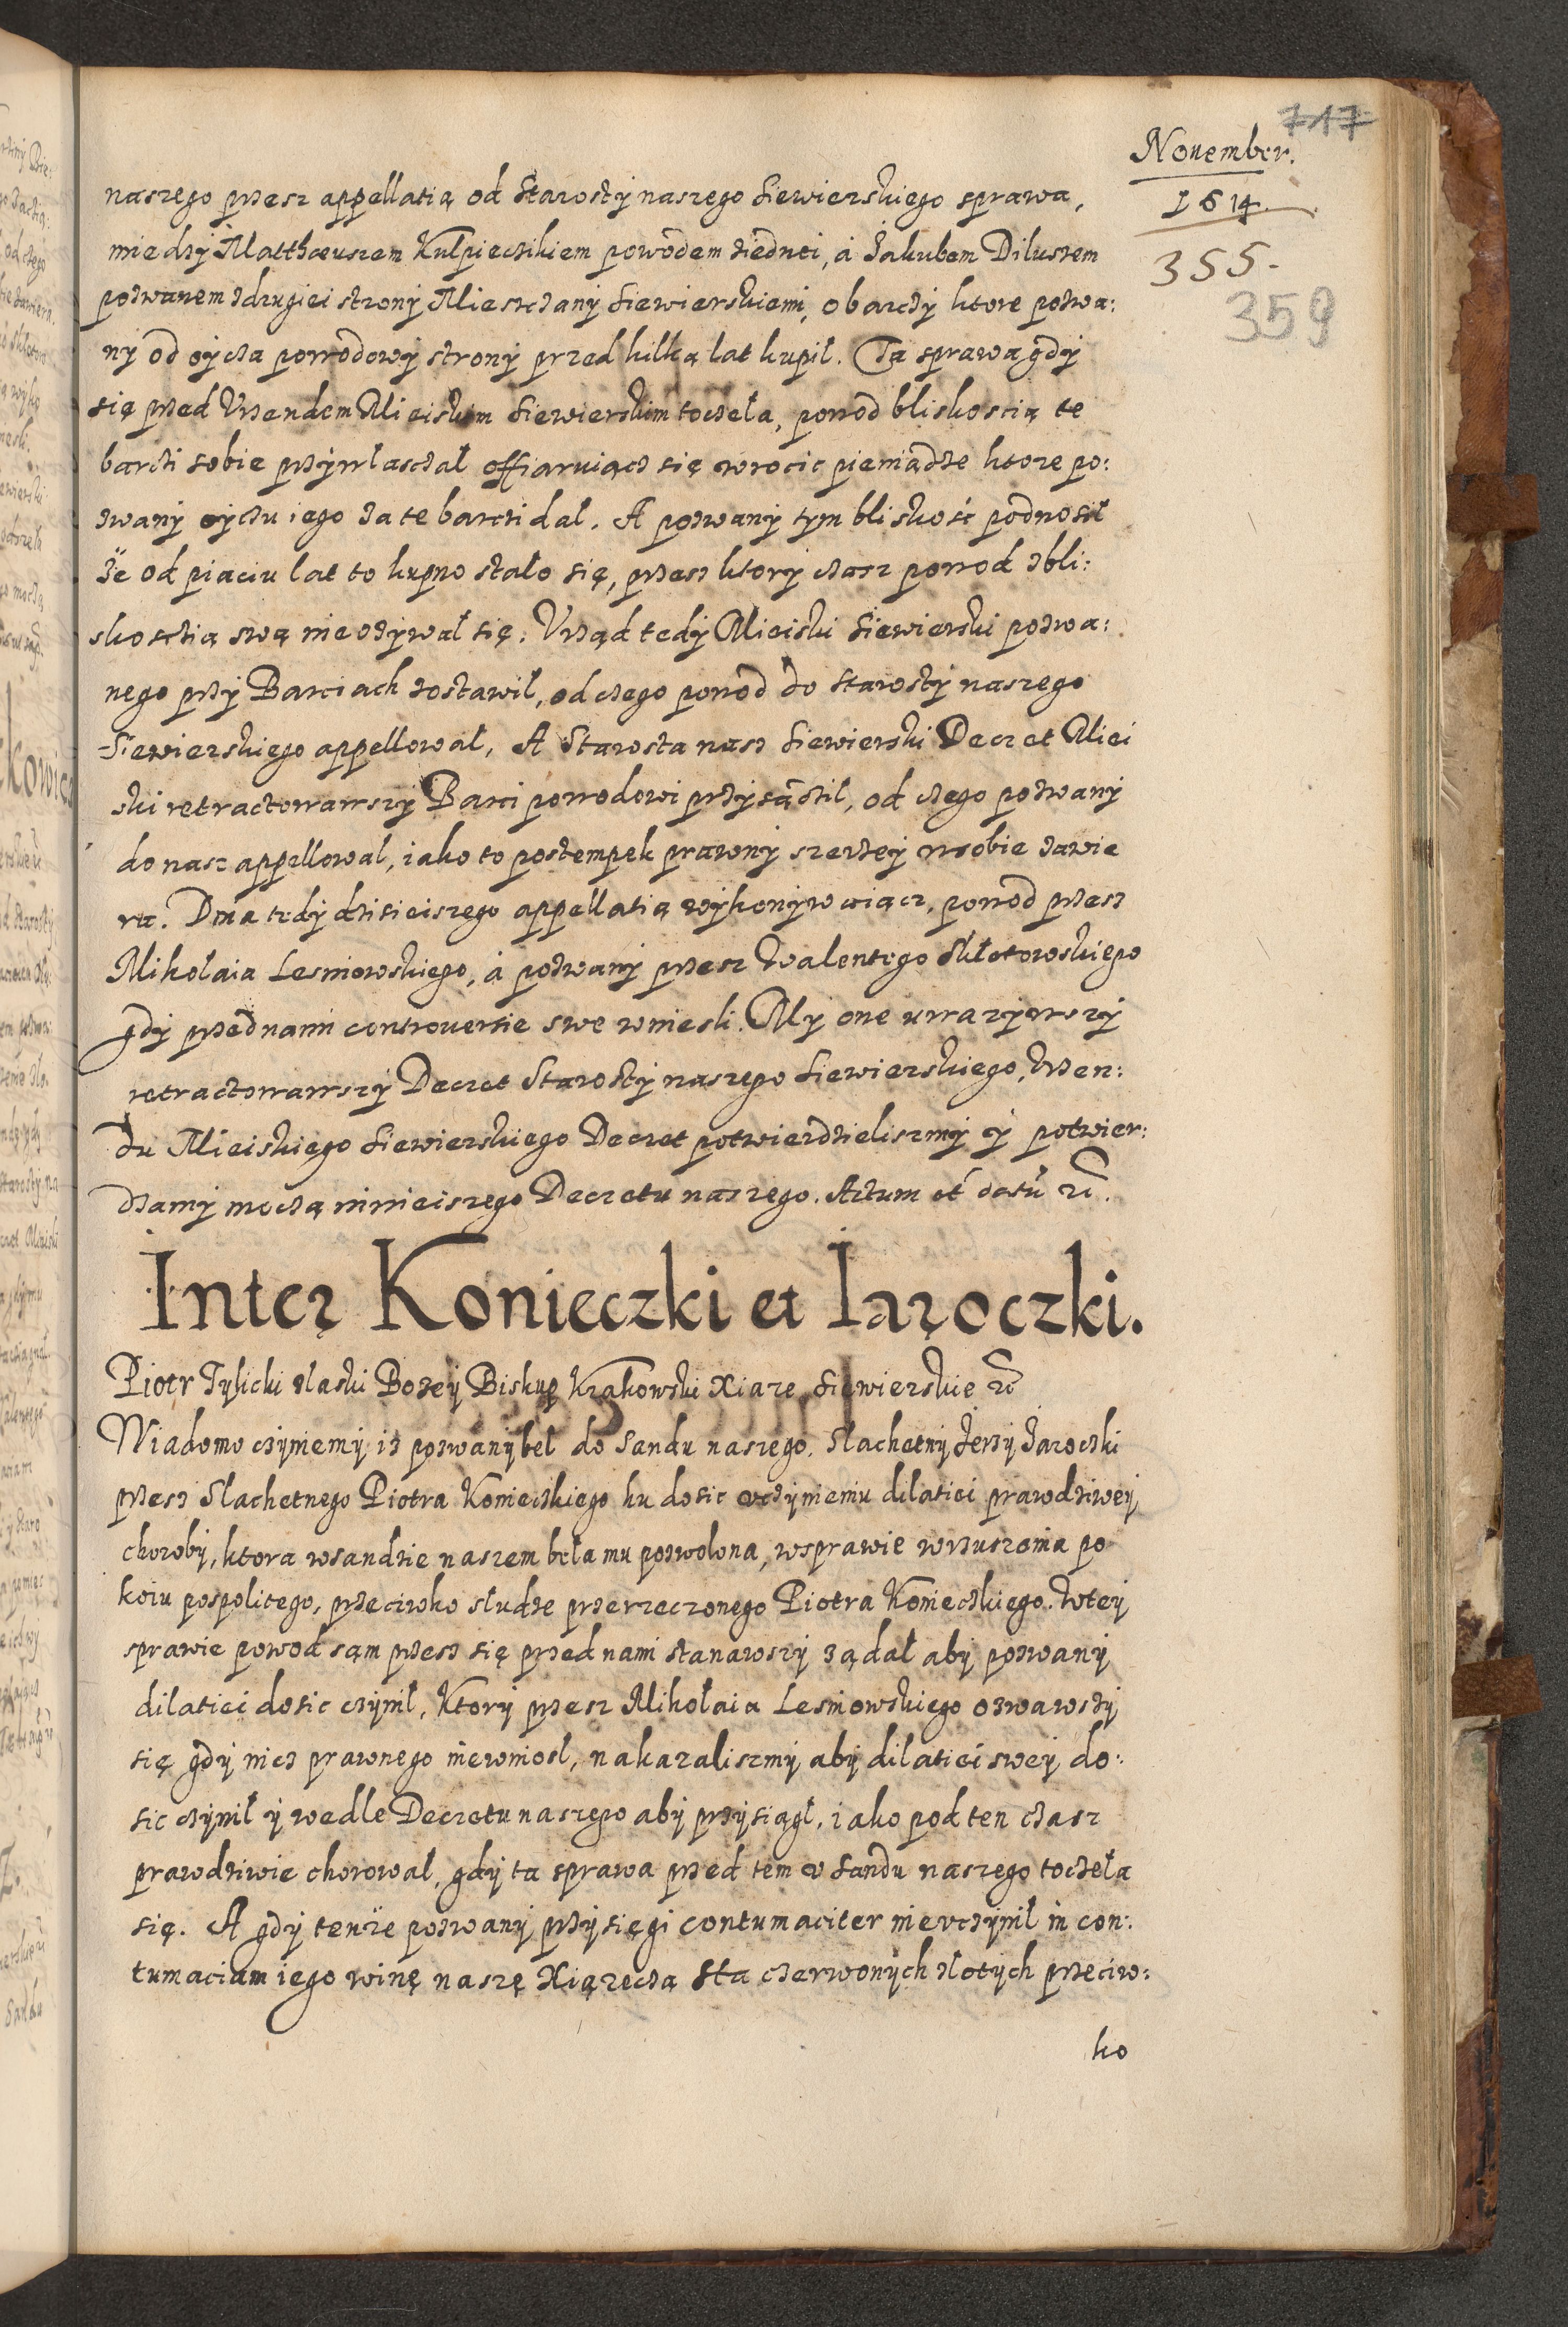 717
November.
1614.
355.
359
naszego przesz appellatią od Starosty naszego Siewierskiego sprawa,
miedzy Matthaeuszem Kulpieczikiem powodem ziednei, a Jakubem Diluszem
pozwanem zdrugiei strony Miesczany Siewierskiemi, o barczy ktore pozwa:
ny od oycza powodowy strony przed kilką lat kupil. Ta sprawa gdy
się przed Vrzendem Mieiskim Siewierskim toczeła, powod bliskoscią te
barczi sobie przywlasczał offiaruiącz się wrocic pieniądze ktore po:
zwany oyczu iego za te barczi dal. A pozwany tym bliskość podnosił
że od piaciu lat to kupno stało się, przesz ktory czasz powod zbli:
skosczią swą nie ozywał się: Vrząd tedy Mieiski Siewierski pozwa:
nego przy Barciach zostawil, od czego powod do Starosty naszego
Siewierskiego appellował, A Starosta nasz Siewierski Decret Miei
ski retractowawszy Barci powodowi przysądzil, od czego pozwany
do nasz appellowal, iako to postempek prawny szerzey wsobie zawie
ra. Dnia tedy dzisieiszego appellatią wykonywaiącz, powod przesz
Mikolaia Lesniowskiego, a pozwany przesz Walentego Skłotowskiego
gdy przed nami controuersie swe wniesli. My one uwazywszy
retractowawszy Decret Starosty naszego Siewierskiego, Vrzen:
du Mieiskiego Siewierskiego Decret potwierdzieliszmy y potwier:
dzamy moczą ninieiszego Decretu naszego. Actum et datu etc.
Inter Konieczki et Jaroczki.
Piotr Tylicki z łaski Bozey Biskup Krakowski Xiaze Siewierskie etc
Wiadomo czyniemy iz pozwany beł do Sandu naszego. Slachetny Jerzy Jaroczki
przesz Slachetnego Piotra Konieczkiego ku dosic vczyniemu dilatiei prawdziwey
choroby, ktora wsandzie naszem beła mu pozwolona, wsprawie wzruszenia po
koiu pospolitego, przeciwko sludze przerzeczonego Piotra Konieczkiego. Wtey
sprawie powod sąm przesz się przed nami stanawszy ządał aby pozwany
dilatiei dosic czynil, Ktory przesz Mikołaia Lesniowskiego ozwawszy
się gdy nicz prawnego niewniosł, nakazaliszmy aby dilatiei swey do:
sic czynił y wedle Decretu naszego aby przysiągł, iako pod ten czasz
prawdziwie chorował, gdy ta sprawa przed tem v Sandu naszego toczeła
się. A gdy tenże pozwany przysięgi contumaciter nievczynił in con:
tumaciam iego winę naszę Xiązeczą sta czerwonych złotych przeciw:
ko